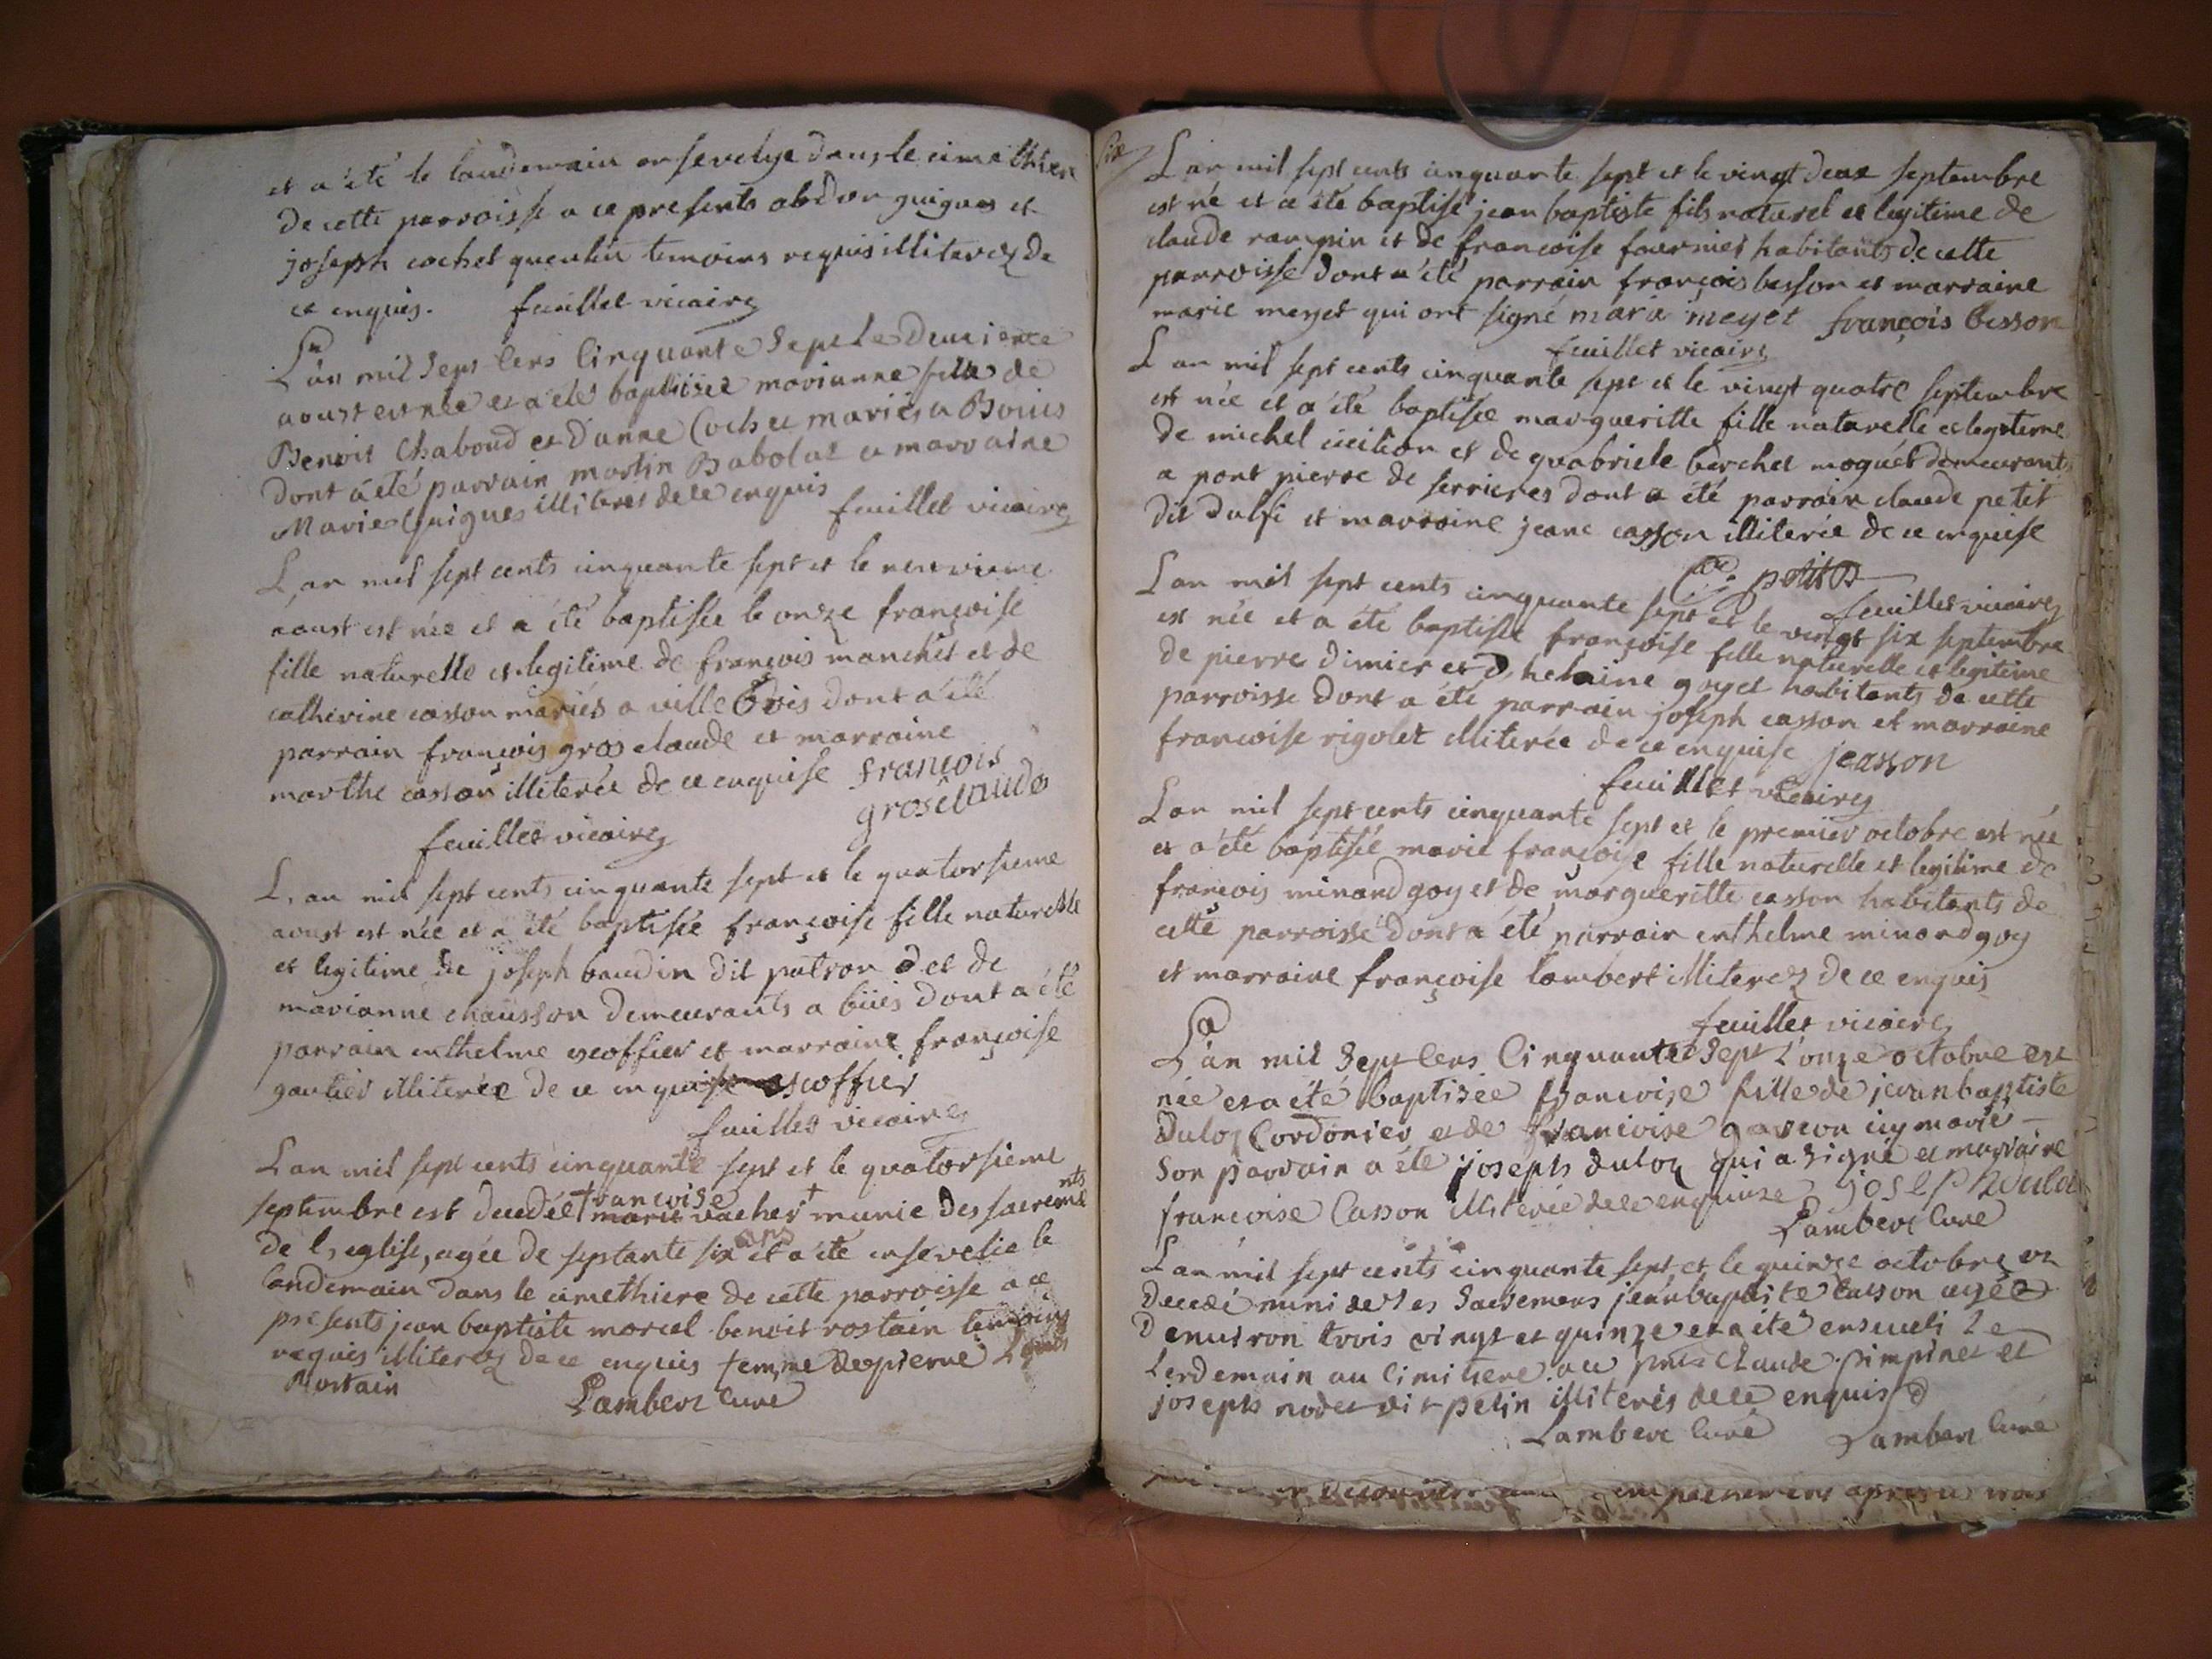 et a été le landemain ensevelye dans le cimethiere
de cette parroisse a ce presents abdon guigues et
joseph cochet quentin temoins requis illiterez de
ce enquis. feuillet vicaire
L'an mil Sept Cens Cinquante Sept Le Deuxieme
aoust est née et a été baptisée marianne fille de
Benoit Chaboud et d'anne Cochet mariés a Bouis
dont a été parrain martin Babolat et marraine
Marie Guigues illiteres de ce enquis feuillet vicaire
L'an mil sept cents cinquante sept et le neuvieme
aoust est née et a été baptisée le onze françoise
fille naturelle et legitime de françois manchet et de
catherine casson mariés a ville bois dont a été
parrain françois gros claude et marraine
marthe casson illiterée de ce enquise françois
grosclaude
feuillet vicaire
L'an mil sept cents cinquante sept et le quatorsieme
aoust est née et a été baptisée françoise fille naturelle
et legitime de joseph baudin dit patron d et de
marianne chausson demeurants a büis dont a été
parrain enthelme escoffier et marraine françoise
gautier illiterée de ce enquise escoffier
feuillet vicaire
L'an mil sept cents cinquante sept et le quatorsieme
septembre est decedée françoise vacher munie des sacrements
de l'eglise, agée de septante six ans et a été ensevelie le
landemain dans le cimethiere de cette parroisse a ce
presents jean baptiste morcel benoit rostain temoins
requis illiterez de ce enquis femme de pierre
Rostain
Lambert Curé
L'an mil sept cents cinquante sept et le vingt deux septembre
est né et a été baptisé jean baptiste fils naturel et legitime de
claude rampin et de françoise fournier habitants de cette
parroisse dont a été parrain françois besson et marraine
marie meyet qui ont signé maria meyet françois besson
feuillet vicaire
L'an mil sept cents cinquante sept et le vingt quatre septembre
est née et a été baptisée margueritte fille naturelle et legiteme
de michel cicilion et de guabriele berchet moguét demeurants
a pont pierre de serrieres dont a été parrain claude petit
dit dalfi et marraine jeane casson illiterée de ce enquise
petit
feuillet vicaire
L'an mil sept cents cinquante sept et le vingt six septembre
est née et a été baptisée françoise fille naturelle et legitime
de pierre dimier et d'helaine goyet habitants de cette
parroisse dont a été parrain joseph casson et marraine
francoise rigolet illiterée de ce enquise jcasson
feuillet vicaire
L'an mil sept cents cinquante sept et le premier octobre est née
et a été baptisée marie françoise fille naturelle et legitime de
françois minand goy et de margueritte casson habitants de
cette parroisse dont a été parrain enthelme minand goy
et marraine françoise lambert illiterez de ce enquis
feuillet vicaire
L'an mil Sept Cens Cinquante Sept L'onze octobre est
née et a été baptisée françoise fille de jean baptiste
Duloz Cordonier et de françoise garcon icy marié
Son parrain a été joseph duloz qui a signé et marraine
françoise Casson illiterée de ce enquise joseph dulo
Lambert Curé
L'an mil sept cents cinquante sept et le quinze octobre est
decedé muni de Ses Sacremens jean baptiste Casson agé
D'environ trois vingt et quinze et a été enseveli Le
Lendemain au Cimitiere. a ce pnts Claude pimpinet et
joseph nodet dit pelin illiterés de ce enquis
Lambert Curé Lambert Curé